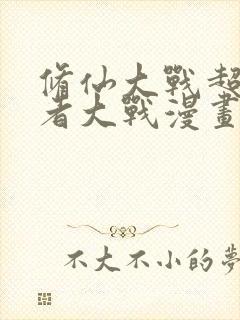 脩仙大戰超
者大戰漫畫
不大不小的夢